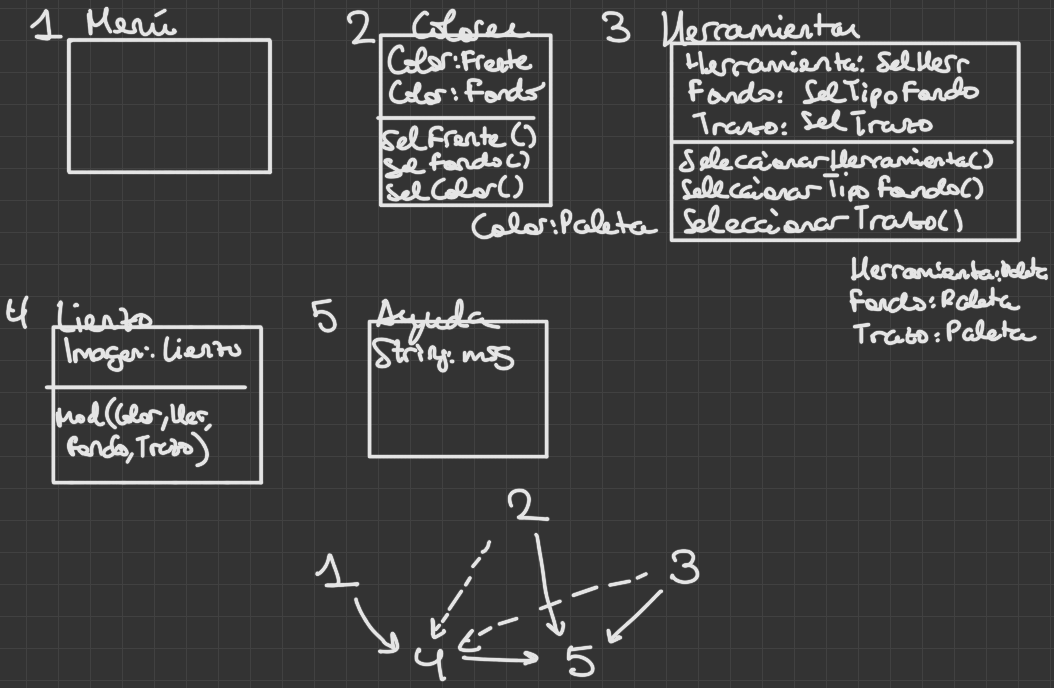 1 Menú
2 Colores
Color:Frente
Color: Fondo
SelFrente()
Sel Fondo()
Sel Color()
Color:Paleta
3 Herramientas
Herramienta: SelHerr
Fondo: SelTipoFondo
Trazo: Sel Trazo
SeleccionarHerramienta()
Seleccionar Tipo Fondo()
Seleccionar Trazo()
Herramienta:Paleta
Fondo: Paleta
Trazo: Paleta
4 Lienzo
Imagen: Lienzo
Mod(Color,Her,
Fondo,Trazo)
5 Ayuda
String: msg
2
1
3
4
5